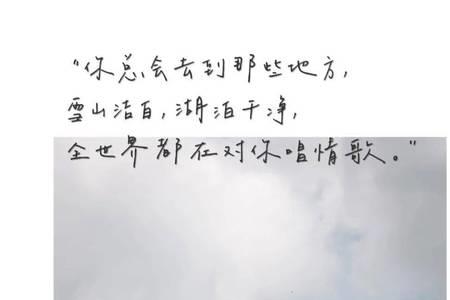 “你总会去到那些地方,
雪山洁白,湖泊干净,
全世界都在对你唱情歌。”